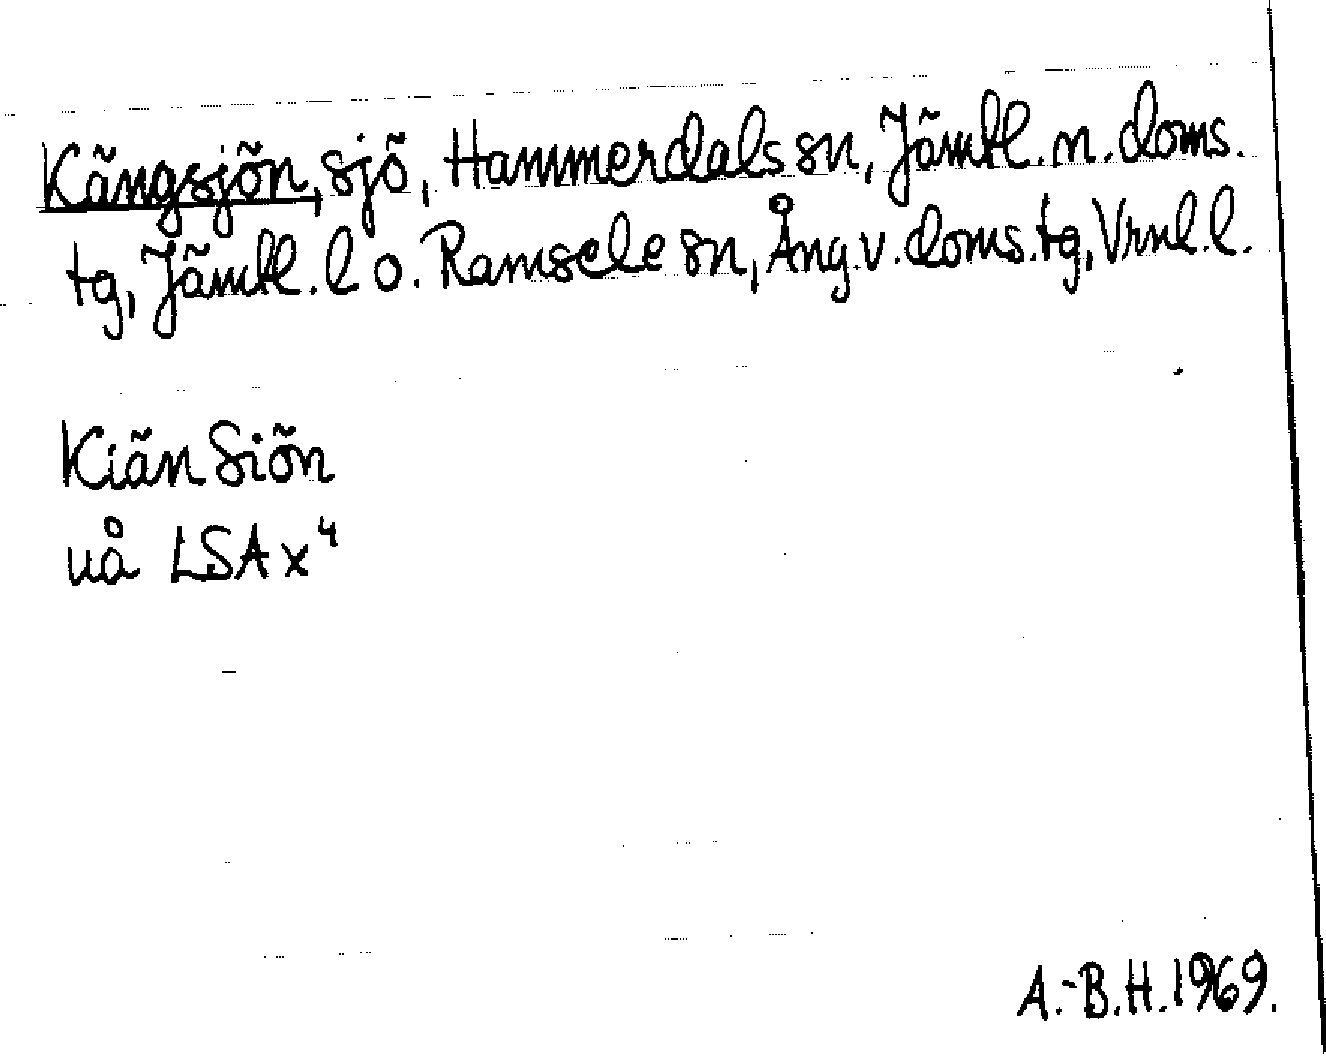 Kängsjön, sjö, Hammerdals sn, Jämtl. n. doms.
tg, Jämtl. l o. Ramsele sn, Ång. v. doms. tg, Vrnl. l.
Kiän Siön
uå LSA x⁴
A.-B.H. 1969.